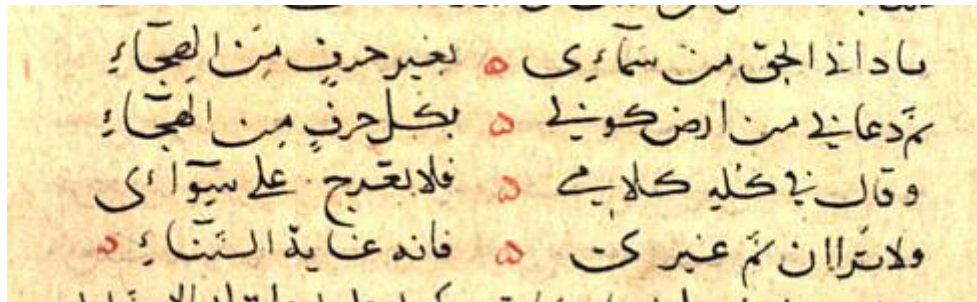 ناداني الحق من سمآءِى ه بغير حرفٍ مِن الهجآءِ
ثمَّ دعاني من ارض كوني ه بكل حرفٍ مِن الهجّآءِ
وقال لي كلّه كلامي ه فلا تعرج على سِوآئى
ولا ترا ان ثَمَّ غيرى ه فانه غاية التنآءِ ه